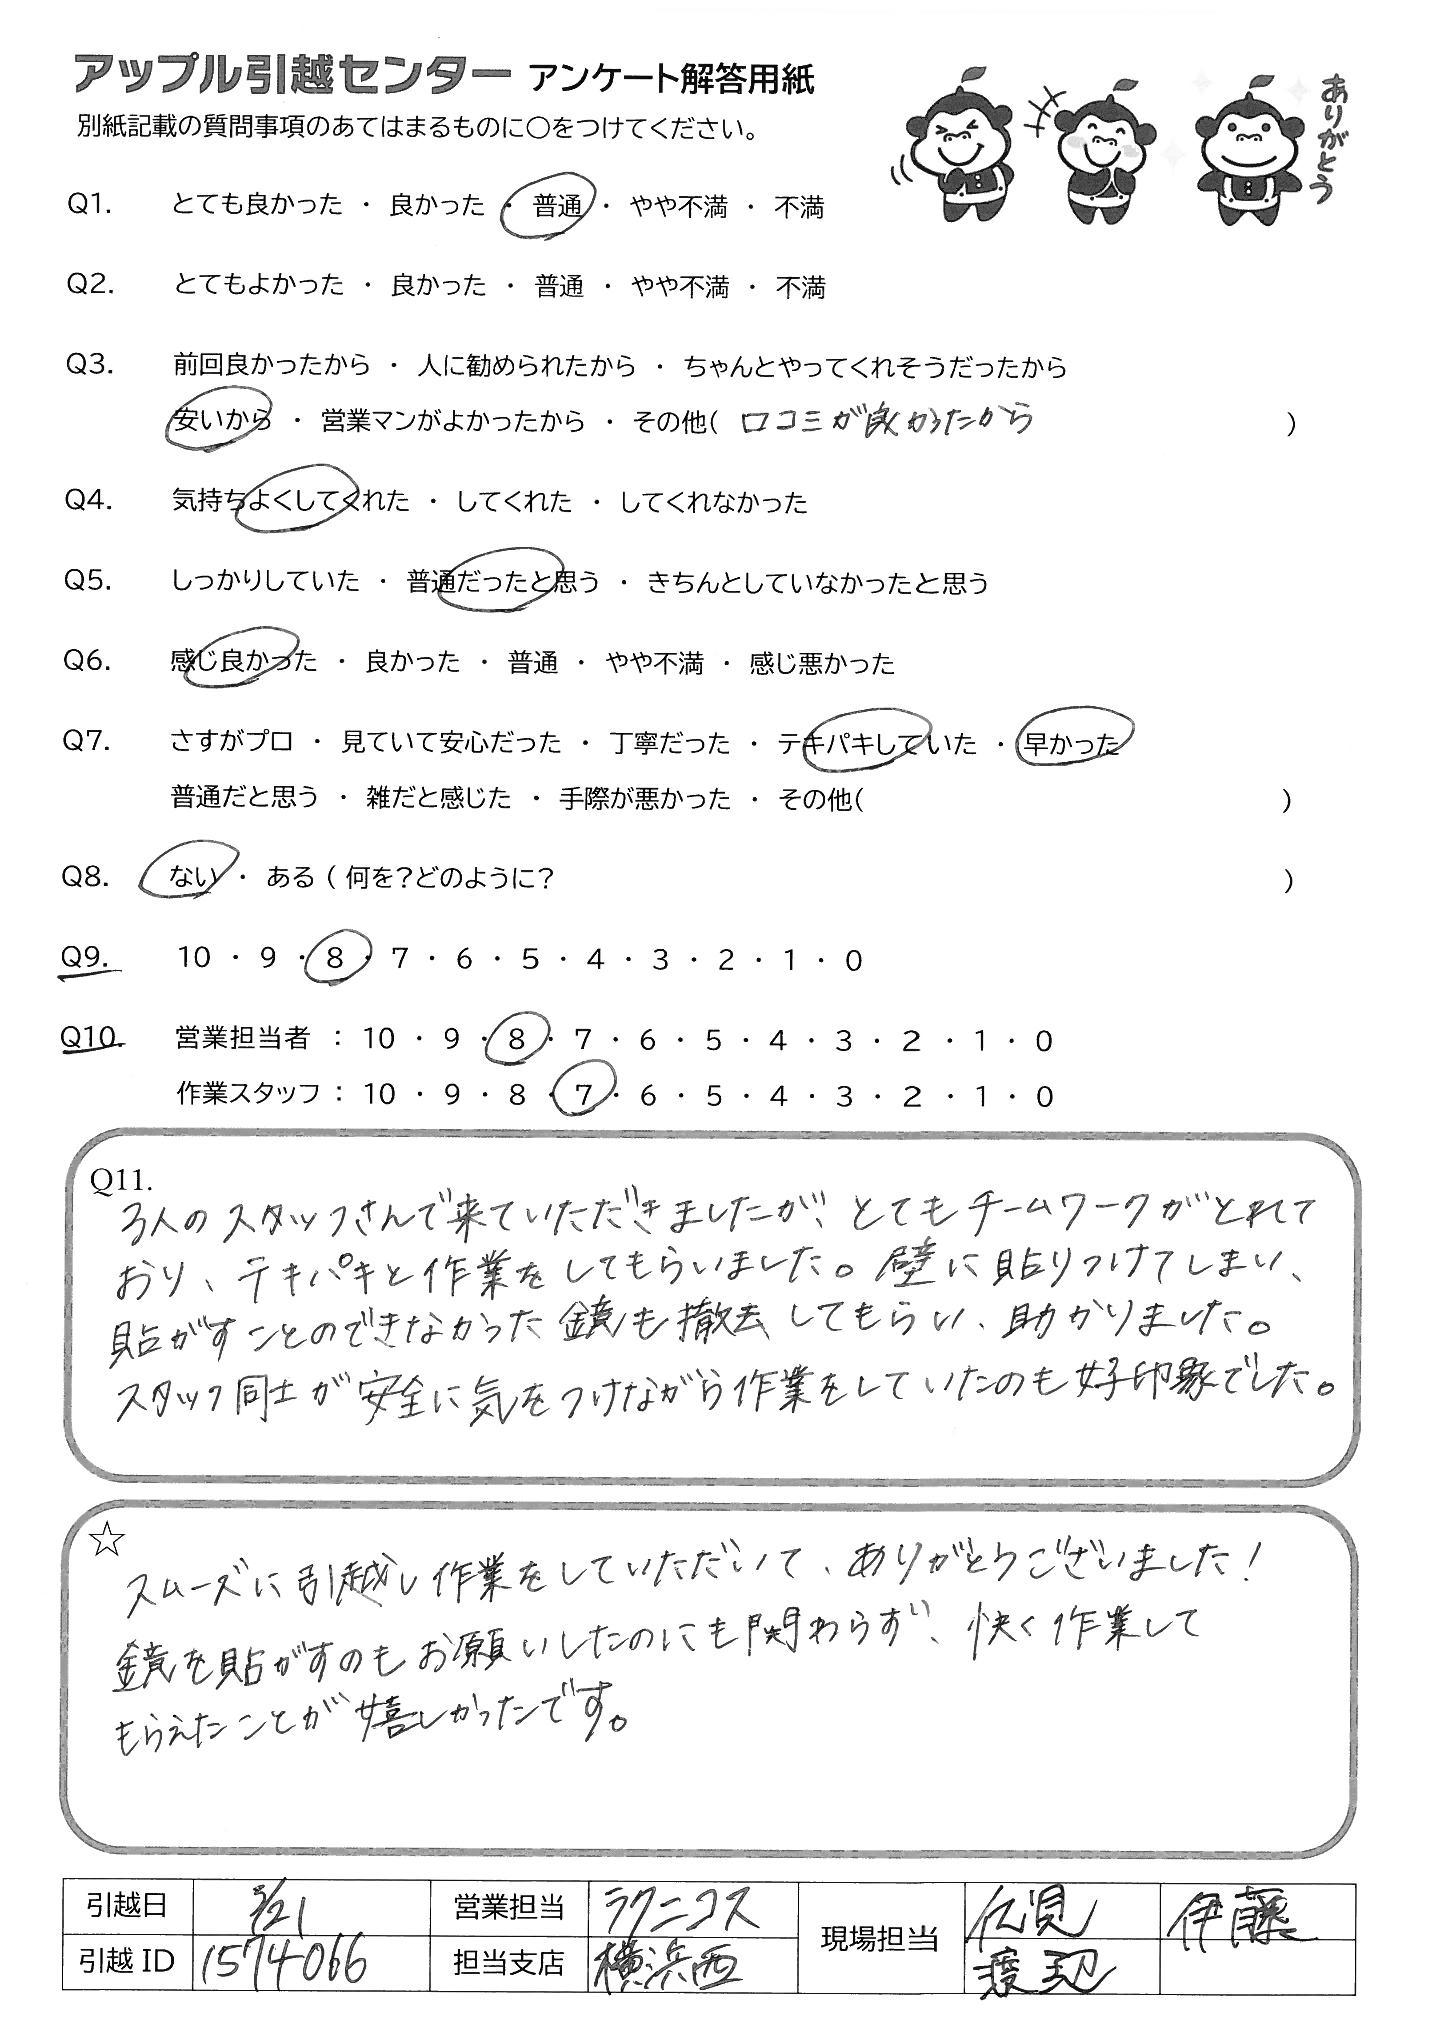 アップル引越センター アンケート解答用紙
別紙記載の質問事項のあてはまるものに〇をつけてください。
ありがとう
Q1. とても良かった ・ 良かった ・ 普通 ・ やや不満 ・ 不満
Q2. とてもよかった ・ 良かった ・ 普通 ・ やや不満 ・ 不満
Q3. 前回良かったから ・ 人に勧められたから ・ ちゃんとやってくれそうだったから
安いから ・ 営業マンがよかったから ・ その他( 口コミが良かったから )
Q4. 気持ちよくしてくれた ・ してくれた ・ してくれなかった
Q5. しっかりしていた ・ 普通だったと思う ・ きちんとしていなかったと思う
Q6. 感じ良かった ・ 良かった ・ 普通 ・ やや不満 ・ 感じ悪かった
Q7. さすがプロ ・ 見ていて安心だった ・ 丁寧だった ・ テキパキしていた ・ 早かった
普通だと思う ・ 雑だと感じた ・ 手際が悪かった ・ その他( )
Q8. ない ・ ある ( 何を?どのように? )
Q9. 10 ・ 9 ・ 8 ・ 7 ・ 6 ・ 5 ・ 4 ・ 3 ・ 2 ・ 1 ・ 0
Q10. 営業担当者 : 10 ・ 9 ・ 8 ・ 7 ・ 6 ・ 5 ・ 4 ・ 3 ・ 2 ・ 1 ・ 0
作業スタッフ : 10 ・ 9 ・ 8 ・ 7 ・ 6 ・ 5 ・ 4 ・ 3 ・ 2 ・ 1 ・ 0
Q11.
3人のスタッフさんで来ていただきましたが、とてもチームワークがとれて
おり、テキパキと作業をしてもらいました。壁に貼りつけてしまい、
貼がすことのできなかった鏡も撤去してもらい、助かりました。
スタッフ同士が安全に気をつけながら作業をしていたのも好印象でした。
☆
スムーズに引越し作業をしていただいて、ありがとうございました!
鏡を貼がすのもお願いしたのにも関わらず、快く作業して
もらえたことが嬉しかったです。
引越日 /21 営業担当 ラクニコス 現場担当 伊藤
引越ID 1574066 担当支店 横浜西 渡辺